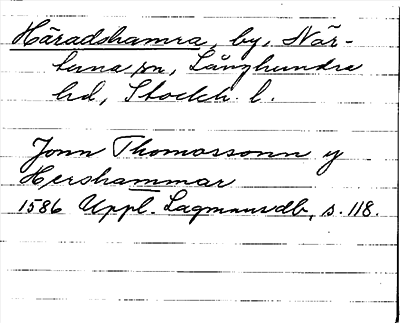 Häradshamra, by, När-
tuna sn, Långhundra
hd, Stockh. l.
Jonn Thomossonn y
Hershammar
1586 Uppl. Lagmansdb, s. 118.